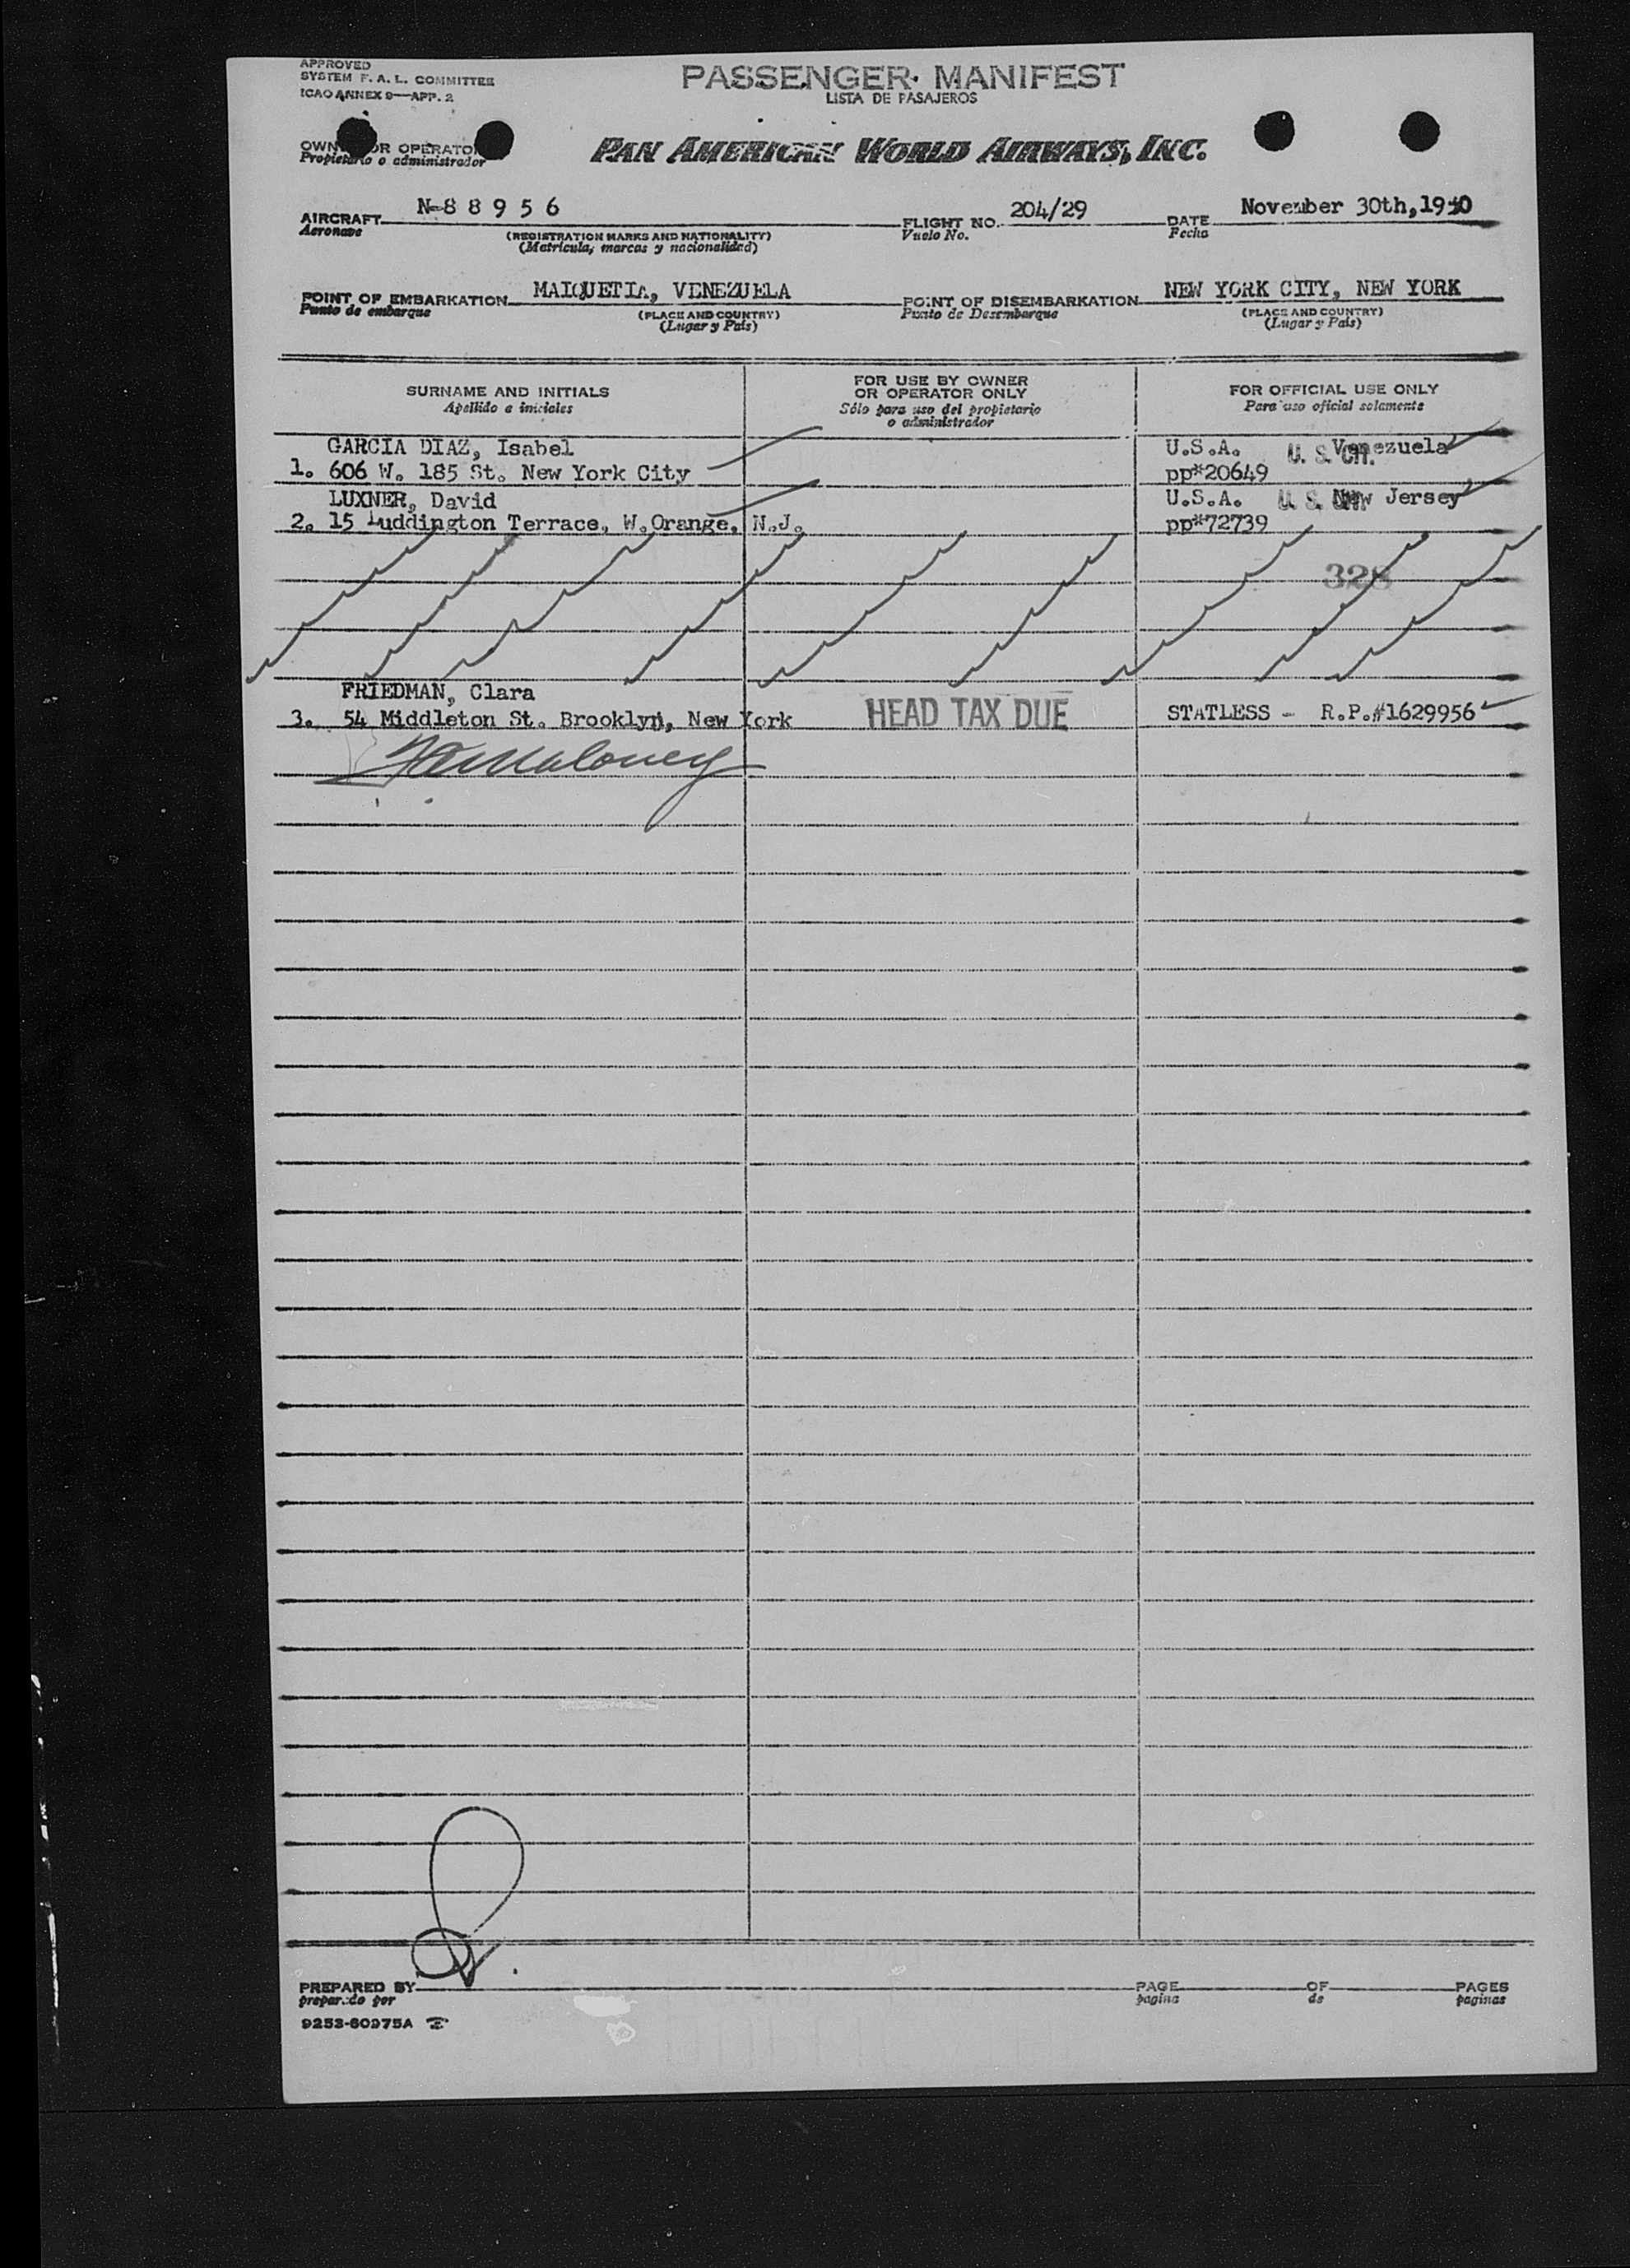 APPROVED
SYSTEM F. A. L. COMMITTEE
ICAO ANNEX 9—APP. 2
PASSENGER MANIFEST
LISTA DE PASAJEROS
OWNER OR OPERATOR
Propietario o administrador
PAN AMERICAN WORLD AIRWAYS, INC.
AIRCRAFT N-8 8 9 5 6 FLIGHT NO. 204/29 DATE November 30th, 1950
Aeronave (REGISTRATION MARKS AND NATIONALITY) Vuelo No. Fecha
(Matricula, marcas y nacionalidad)
POINT OF EMBARKATION MAIQUETIA, VENEZUELA POINT OF DISEMBARKATION NEW YORK CITY, NEW YORK
Punto de embarque (PLACE AND COUNTRY) Punto de Desembarque (PLACE AND COUNTRY)
(Lugar y País) (Lugar y País)
SURNAME AND INITIALS FOR USE BY OWNER OR OPERATOR ONLY FOR OFFICIAL USE ONLY
Apellido e iniciales Sólo para uso del propietario o administrador Para uso oficial solamente
GARCIA DIAZ, Isabel U.S.A. U. S. CIT. Venezuela
1. 606 W. 185 St. New York City pp*20649
LUXNER, David U.S.A. U. S. CIT. New Jersey
2. 15 Luddington Terrace, W.Orange, N.J. pp*72739
328
FRIEDMAN, Clara
3. 54 Middleton St. Brooklyn, New York HEAD TAX DUE STATLESS - R.P.#1629956
PREPARED BY PAGE OF PAGES
preparado por pagina de paginas
9253-60975A